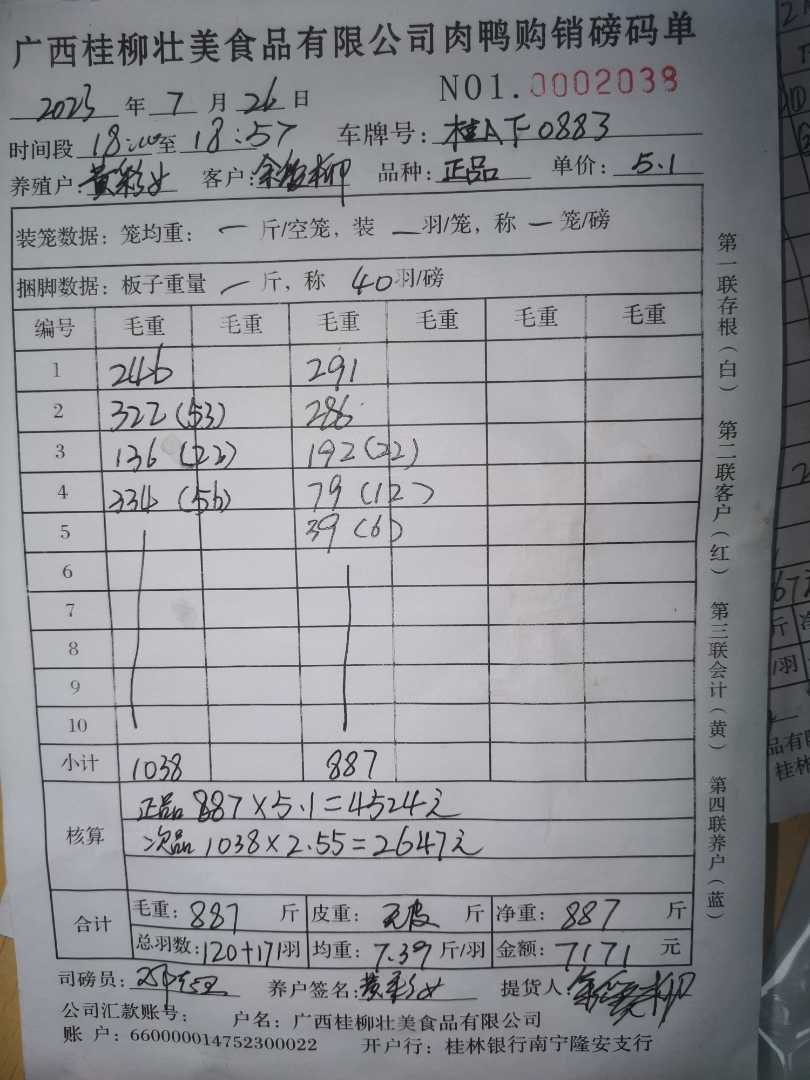 广西桂柳壮美食品有限公司肉鸭购销磅码单
2023 年 7 月 26 日 NO1.0002038
时间段 18:00 至 18:57 车牌号: 桂AF0883
养殖户: 黄彩 客户: 柳 品种: 正品 单价: 5.1
装笼数据: 笼均重: 一 斤/空笼, 装 一 羽/笼, 称 一 笼/磅
捆脚数据: 板子重量 一 斤, 称 40 羽/磅
编号 毛重 毛重 毛重 毛重 毛重 毛重
1 246 291
2 322 (53) 286
3 136 (23) 192 (22)
4 334 (56) 79 (12)
5 39 (6)
6
7
8
9
10
小计 1038 887
核算 正品 887×5.1=4524元
次品 1038×2.55=2647元
合计 毛重: 887 斤 皮重: 无皮 斤 净重: 887 斤
总羽数: 120+171羽 均重: 7.39 斤/羽 金额: 7171 元
司磅员: 养户签名: 黄彩 提货人: 柳
公司汇款账号: 户名: 广西桂柳壮美食品有限公司
账 户: 660000014752300022 开户行: 桂林银行南宁隆安支行
第一联存根(白) 第二联客户(红) 第三联会计(黄) 第四联养户(蓝)